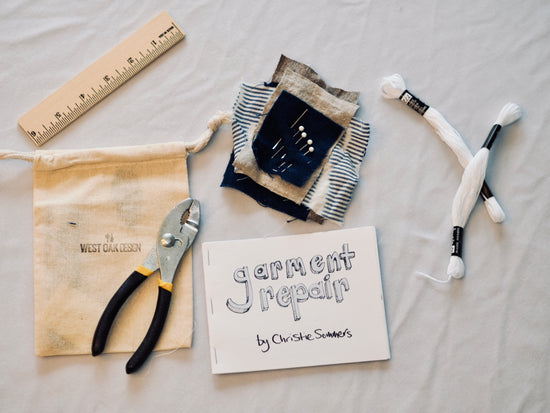 WEST OAK DESIGN
garment
repair
by Christie Sommers